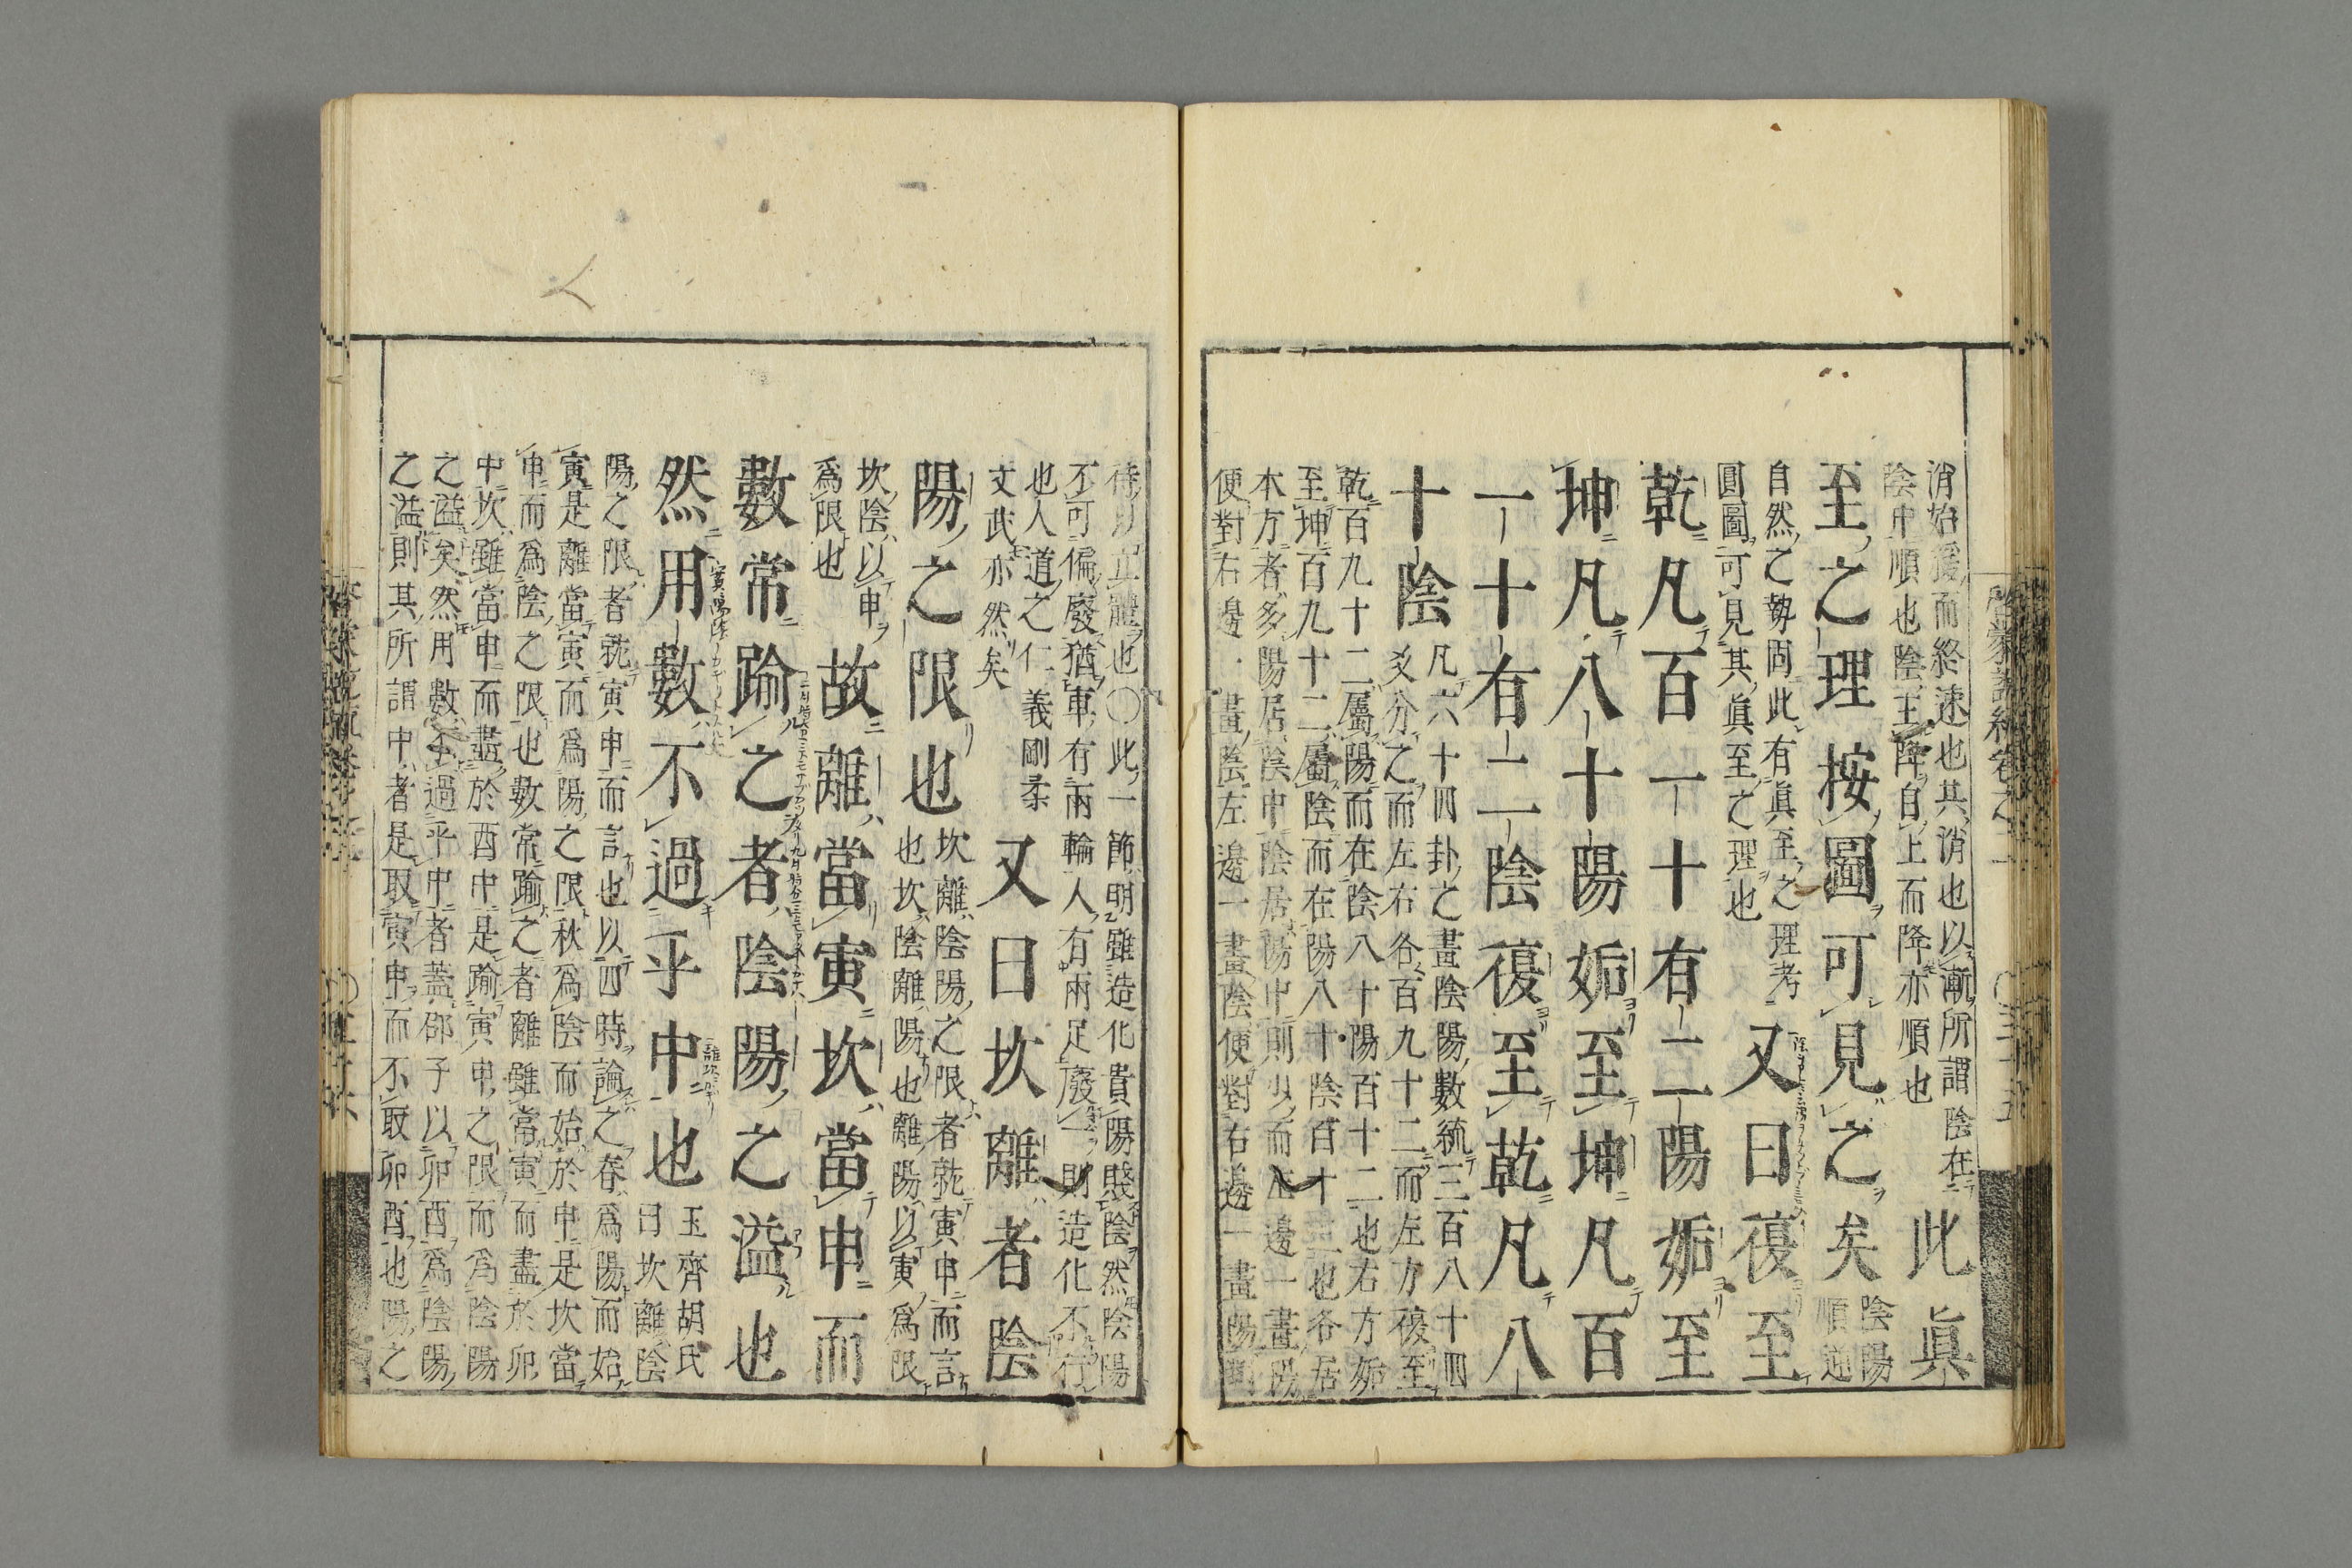 消始緩而終速也其消也以漸所謂陰在
陰中順也陰主降自上而降亦順也
此眞
至之理按圖可見之矣
陰陽
順逆
自然之勢固此有眞至之理考
圓圖可見其眞至之理也
又曰復至
乾凡百一十有二陽姤至
坤凡八十陽姤至坤凡百
一十有二陰復至乾凡八
十陰
凡六十四卦之畫陰陽數統三百八十四
爻分之而左右各百九十二而左方復至
乾百九十二屬陽而在陰八十陽百十二也右方姤
至坤百九十二屬陰而在陽八十陰百十二也各居
本方者多陽居陰中陰居陽中則少而左邊一畫陽
便對右邊一畫陰左邊一畫陰便對右邊一畫陽對
待以立體也〇此一節明雖造化貴陽賤陰然陰陽
不可偏廢猶車有兩輪人有兩足廢一則造化不行
也人道之仁義剛柔
文武亦然矣
又曰坎離者陰
陽之限也
坎離陰陽之限者就寅申而言
也坎陰離陽也離陽以寅爲限
坎陰以申
爲限也
故離當寅坎當申而
數常踰之者陰陽之溢也
然用數不過乎中也
玉齊胡氏
曰坎離陰
陽之限者就寅申而言也以四時論之春爲陽而始
寅是離當寅而爲陽之限秋爲陰而始於申是坎當
申而爲陰之限也數常踰之者離雖當寅而盡於卯
中坎雖當申而盡於酉中是踰寅申之限而爲陰陽
之溢矣然用數不過乎中者蓋邵子以卯酉爲陰陽
之溢則其所謂中者是取寅申而不取卯酉也陽之